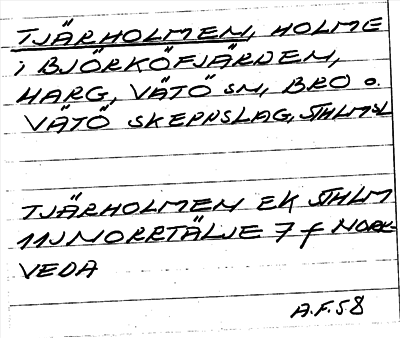 TJÄRHOLMEN, HOLME
i BJÖRKÖFJÄRDEN,
HARG, VÄTÖ SN, BRO o.
VÄTÖ SKEPPSLAG, STHLMSL
TJÄRHOLMEN EK STHLM
11J NORRTÄLJE 7 f NORR-
VEDA
A.F.58